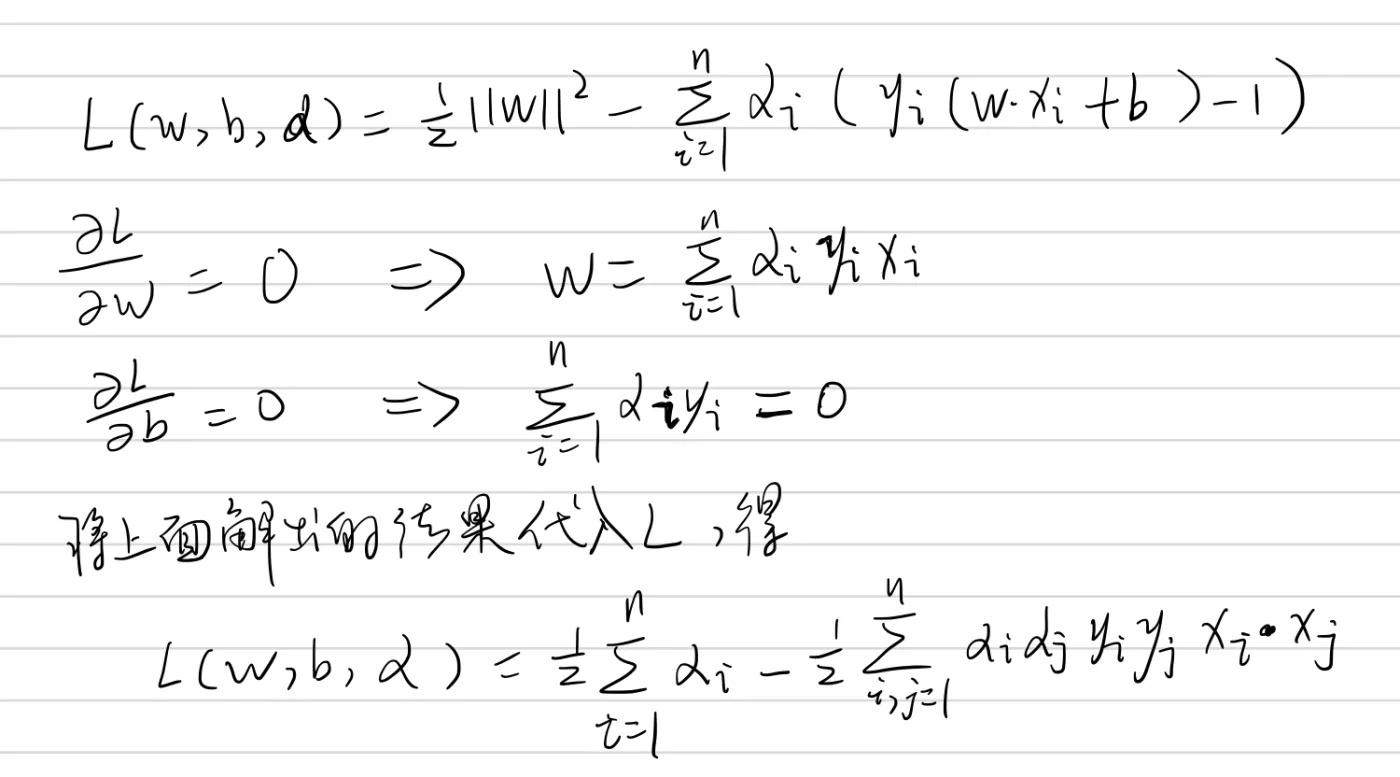 L(w, b, α) = ½||W||² − ∑ᵢ₌₁ⁿ αᵢ ( yᵢ (w·xᵢ + b ) − 1 )
∂L/∂w = 0 => w = ∑ᵢ₌₁ⁿ αᵢ yᵢ xᵢ
∂L/∂b = 0 => ∑ᵢ₌₁ⁿ αᵢ yᵢ = 0
将上面解出的结果代入L,得
L(w, b, α) = ½ ∑ᵢ₌₁ⁿ αᵢ − ½ ∑ᵢ,ⱼ₌₁ⁿ αᵢ αⱼ yᵢ yⱼ xᵢ · xⱼ